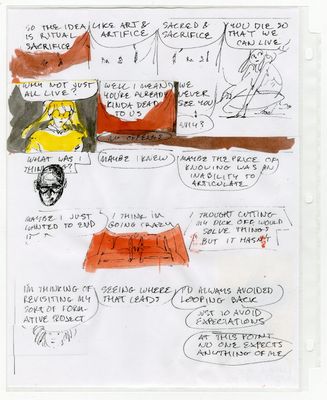 SO THE IDEA
IS RITUAL
SACRIFICE
LIKE ART &
ARTIFICE
SACRED &
SACRIFICE
YOU DIE SO
THAT WE
CAN LIVE
WHY NOT JUST
ALL LIVE?
WELL I MEAN
YOU'RE ALREADY
KINDA DEAD
TO US
WE
NEVER
SEE YOU
WHAT WAS I
MAYBE I KNEW
MAYBE THE PRICE OF
KNOWING WAS AN
INABILITY TO
ARTICULATE
MAYBE I JUST
WANTED TO END
IT
I THINK I'M
GOING CRAZY
I THOUGHT CUTTING
MY DICK OFF WOULD
SOLVE THINGS
BUT IT HASN'T
I'M THINKING OF
REVISITING MY
SORT OF FORM-
ATIVE PROJECT
SEEING WHERE
THAT LEADS
I'D ALWAYS AVOIDED
LOOPING BACK
JUST TO AVOID
EXPECTATIONS
AT THIS POINT
NO ONE EXPECTS
ANYTHING OF ME